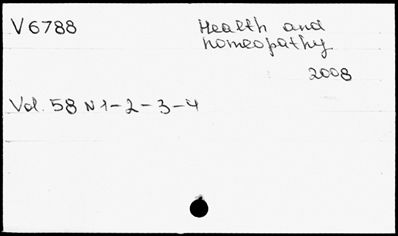 V6788
Health and
homeopathy
2008
Vol. 58 N 1-2-3-4